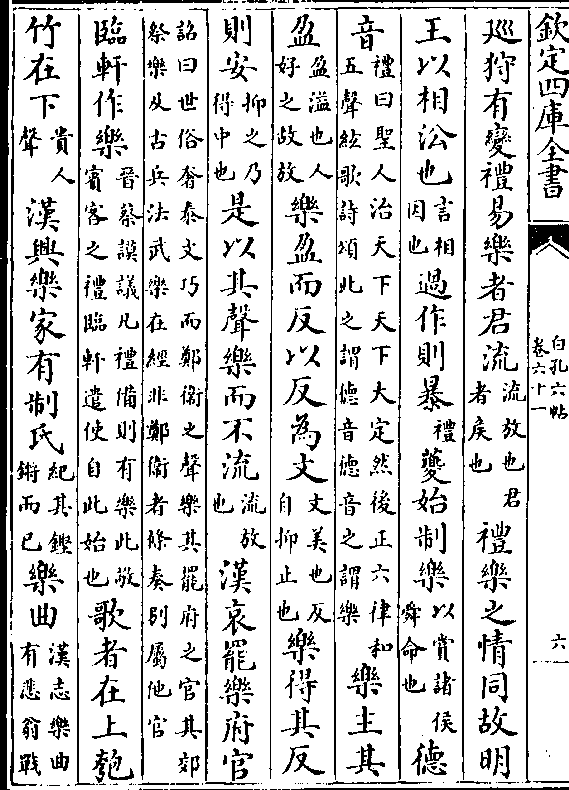 欽定四庫全書
白孔六帖
卷六十一
六
巡狩有變禮易樂者君流流放也君者戾也禮樂之情同故明
王以相沿也言相因也過作則暴禮夔始制樂以賞諸侯舜命也德
音禮曰聖人治天下天下大定然後正六律和五聲絃歌詩頌此之謂德音德音之謂樂樂主其
盈盈溢也人好之故放樂盈而反以反為文文美也反自抑止也樂得其反
則安抑之乃得中也是以其聲樂而不流流放也漢哀罷樂府官
詔曰世俗奢泰文巧而鄭衛之聲樂其罷府之官其郊祭樂及古兵法武樂在經非鄭衛者條奏别屬他官
臨軒作樂晉蔡謨議凡禮備則有樂此敬賓客之禮臨軒遣使自此始也歌者在上匏
竹在下貴人聲漢興樂家有制氏紀其鏗鏘而已樂曲漢志樂曲有悲翁戰